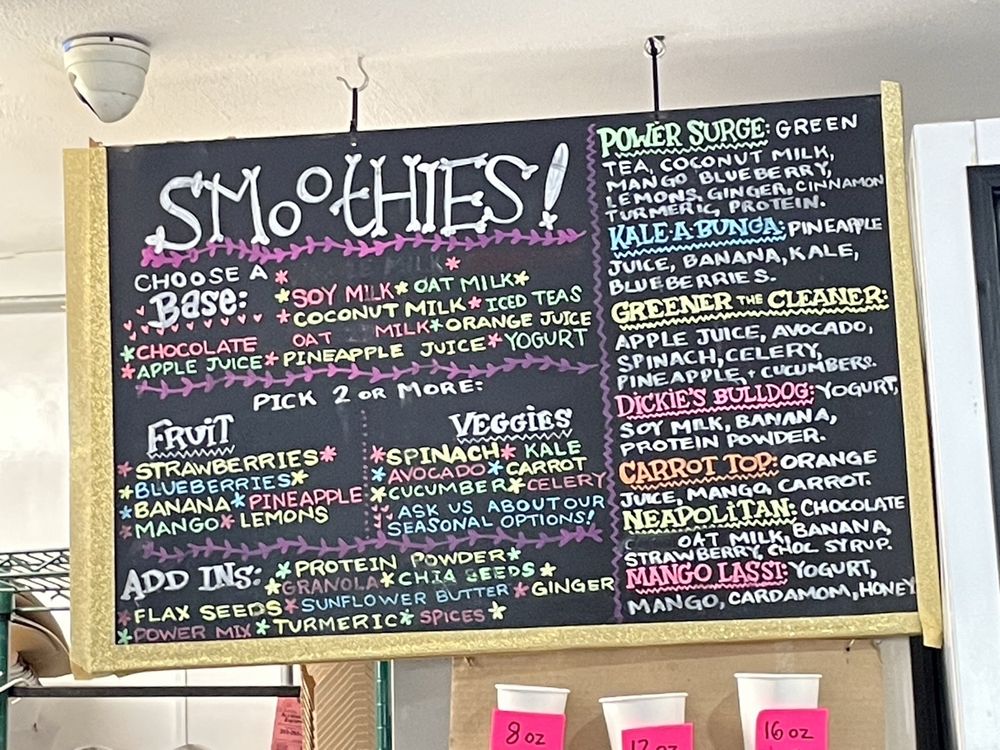 SMOOTHIES!
CHOOSE A
BASE:
MILK*
*SOY MILK*OAT MILK*
*COCONUT MILK*ICED TEAS
*CHOCOLATE OAT MILK*ORANGE JUICE
*APPLE JUICE*PINEAPPLE JUICE*YOGURT
PICK 2 OR MORE:
FRUIT
*STRAWBERRIES*
*BLUEBERRIES*
*BANANA*PINEAPPLE
*MANGO*LEMONS
VEGGIES
*SPINACH*KALE
*AVOCADO*CARROT
*CUCUMBER*CELERY
ASK US ABOUT OUR
SEASONAL OPTIONS!
ADD INS: *PROTEIN POWDER*
*GRANOLA*CHIA SEEDS*
*FLAX SEEDS*SUNFLOWER BUTTER*GINGER
*POWER MIX*TURMERIC*SPICES*
POWER SURGE: GREEN
TEA, COCONUT MILK,
MANGO BLUEBERRY,
LEMONS, GINGER, CINNAMON
TURMERIC, PROTEIN.
KALE-A-BUNGA: PINEAPPLE
JUICE, BANANA, KALE,
BLUEBERRIES.
GREENER THE CLEANER:
APPLE JUICE, AVOCADO,
SPINACH, CELERY,
PINEAPPLE, + CUCUMBERS.
DICKIE'S BULLDOG: YOGURT,
SOY MILK, BANANA,
PROTEIN POWDER.
CARROT TOP: ORANGE
JUICE, MANGO, CARROT.
NEAPOLITAN: CHOCOLATE
OAT MILK, BANANA,
STRAWBERRY, CHOC SYRUP.
MANGO LASSI: YOGURT,
MANGO, CARDAMOM, HONEY
8 oz
12 oz
16 oz